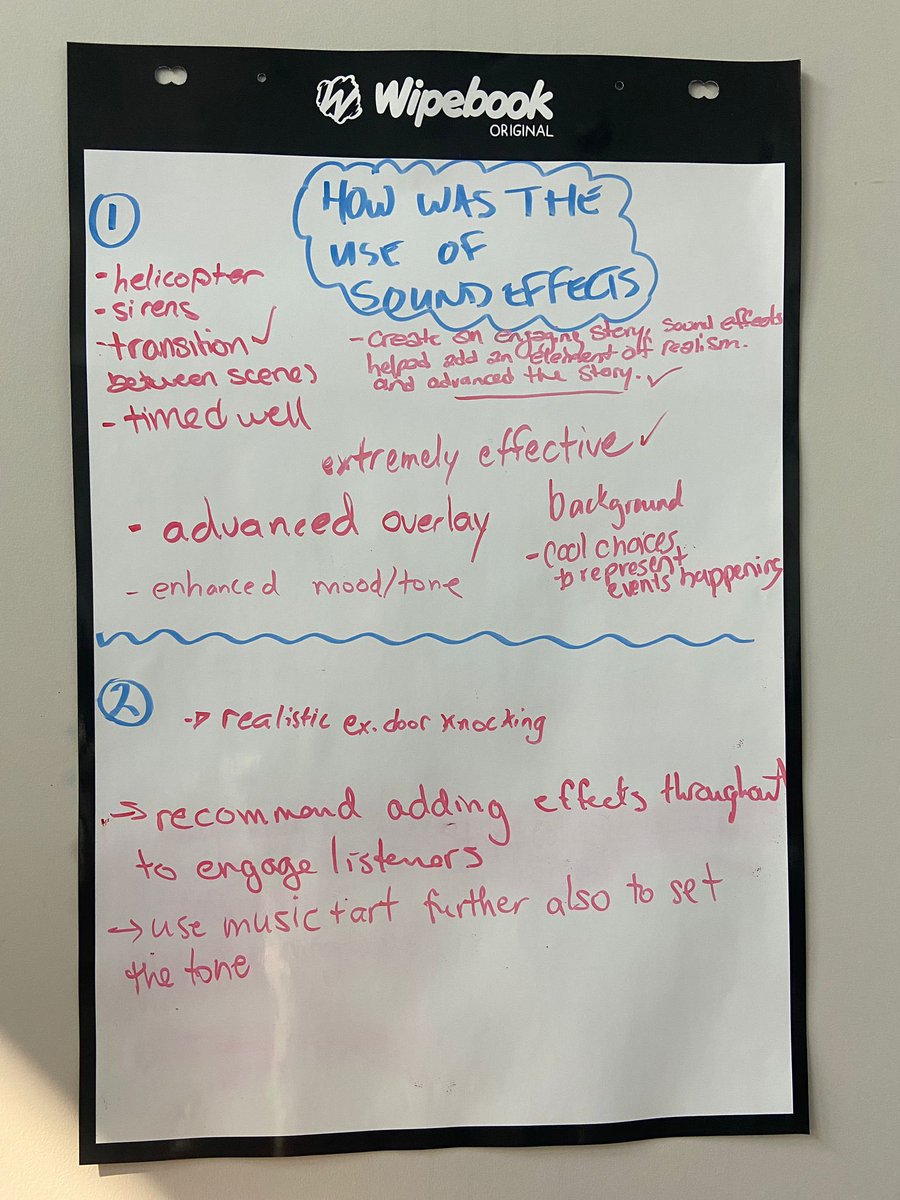 Wipebook
ORIGINAL
HOW WAS THE
USE OF
SOUND EFFECTS
1
- helicopter
- sirens
- transition ✓
between scenes
- timed well
- Create an engaging story, sound effects
helped add an element of realism.
and advanced the story. ✓
extremely effective ✓
- advanced overlay
background
- cool choices
to represent
events happening
- enhanced mood/tone
2
-> realistic ex. door knocking
-> recommend adding effects throughout
to engage listeners
-> use music + art further also to set
the tone